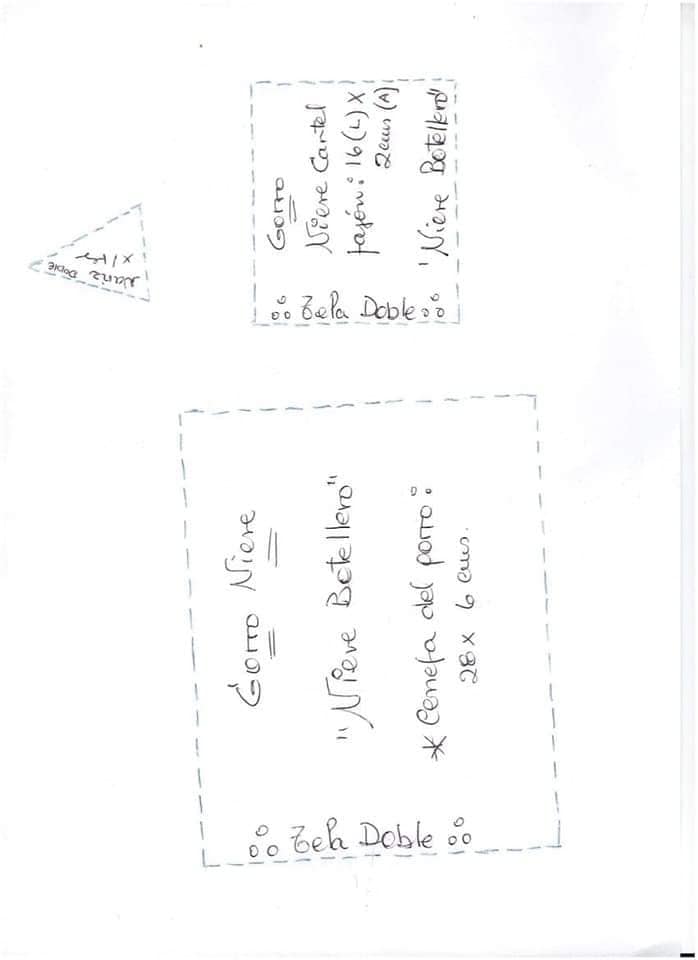 Nariz Doble
Gorro
Nieve Cartel
fajón: 16 (L) X
2 cms (A)
"Nieve Botellero"
Tela Doble
Gorro Nieve
"Nieve Botellero"
* Cenefa del gorro:
28 x 6 cms.
Tela Doble